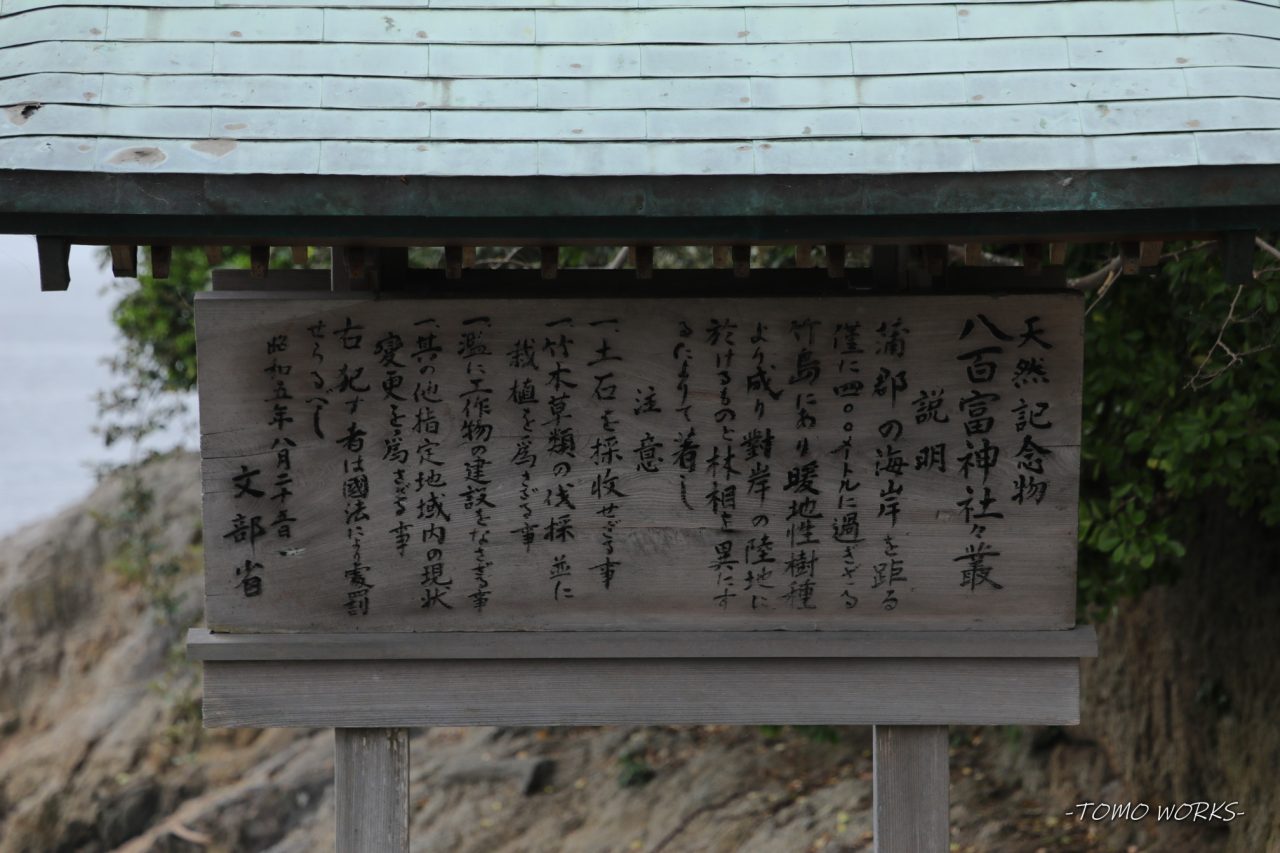 天然記念物
八百富神社々叢
説明
蒲郡の海岸を距る
僅に四〇〇メートルに過ぎざる
竹島にあり暖地性樹種
より成り對岸の陸地に
於けるものと林相を異にす
るによりて著し
注意
一、土石を採收せざる事
一、竹木草類の伐採並に
栽植を爲さざる事
一、濫に工作物の建設をなさざる事
一、其の他指定地域内の現状
変更を爲さざる事
右犯す者は國法により處罰
せらるべし
昭和五年八月二十五日
文部省
-TOMO WORKS-